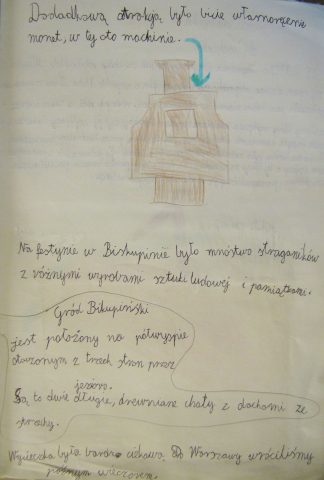 Dodadkową atrakcją było bicie własnoręczne
monet, w tej oto machinie.
Na festynie w Biskupinie było mnóstwo straganików
z różnymi wyrobami sztuki ludowej i pamiątkami.
Gród Bikupiński
jest położony na półwyspie
otoczonym z trzech stron przez
jezioro.
Są to dwie długie, drewniane chaty z dachami ze
strzechy.
Wycieczka była bardzo ciekawa. Do Warszawy wróciliśmy
późnym wieczorem.